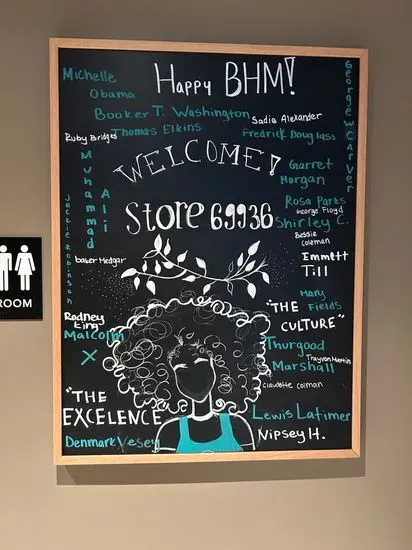 Happy BHM!
Michelle
Obama
George W Carver
Booker T. Washington
Sadie Alexander
Thomas Elkins
Fredrick Douglass
Ruby Bridges
WELCOME!
Garret
Morgan
Muhammad
Ali
Jackie Robinson
Store 69936
Rosa Parks
George Floyd
Shirley C.
Bessie
Coleman
Emmett
Till
Medgar
Mary
Fields
"THE
CULTURE"
Rodney
King
Malcolm
X
Thurgood
Marshall
Trayvon Martin
Claudette Colman
"THE
EXCELENCE
Lewis Latimer
Denmark Vesey
Nipsey H.
ROOM